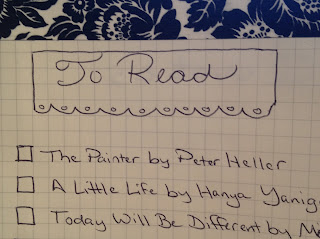 To Read
The Painter by Peter Heller
A Little Life by Hanya Yanig
Today Will Be Different by